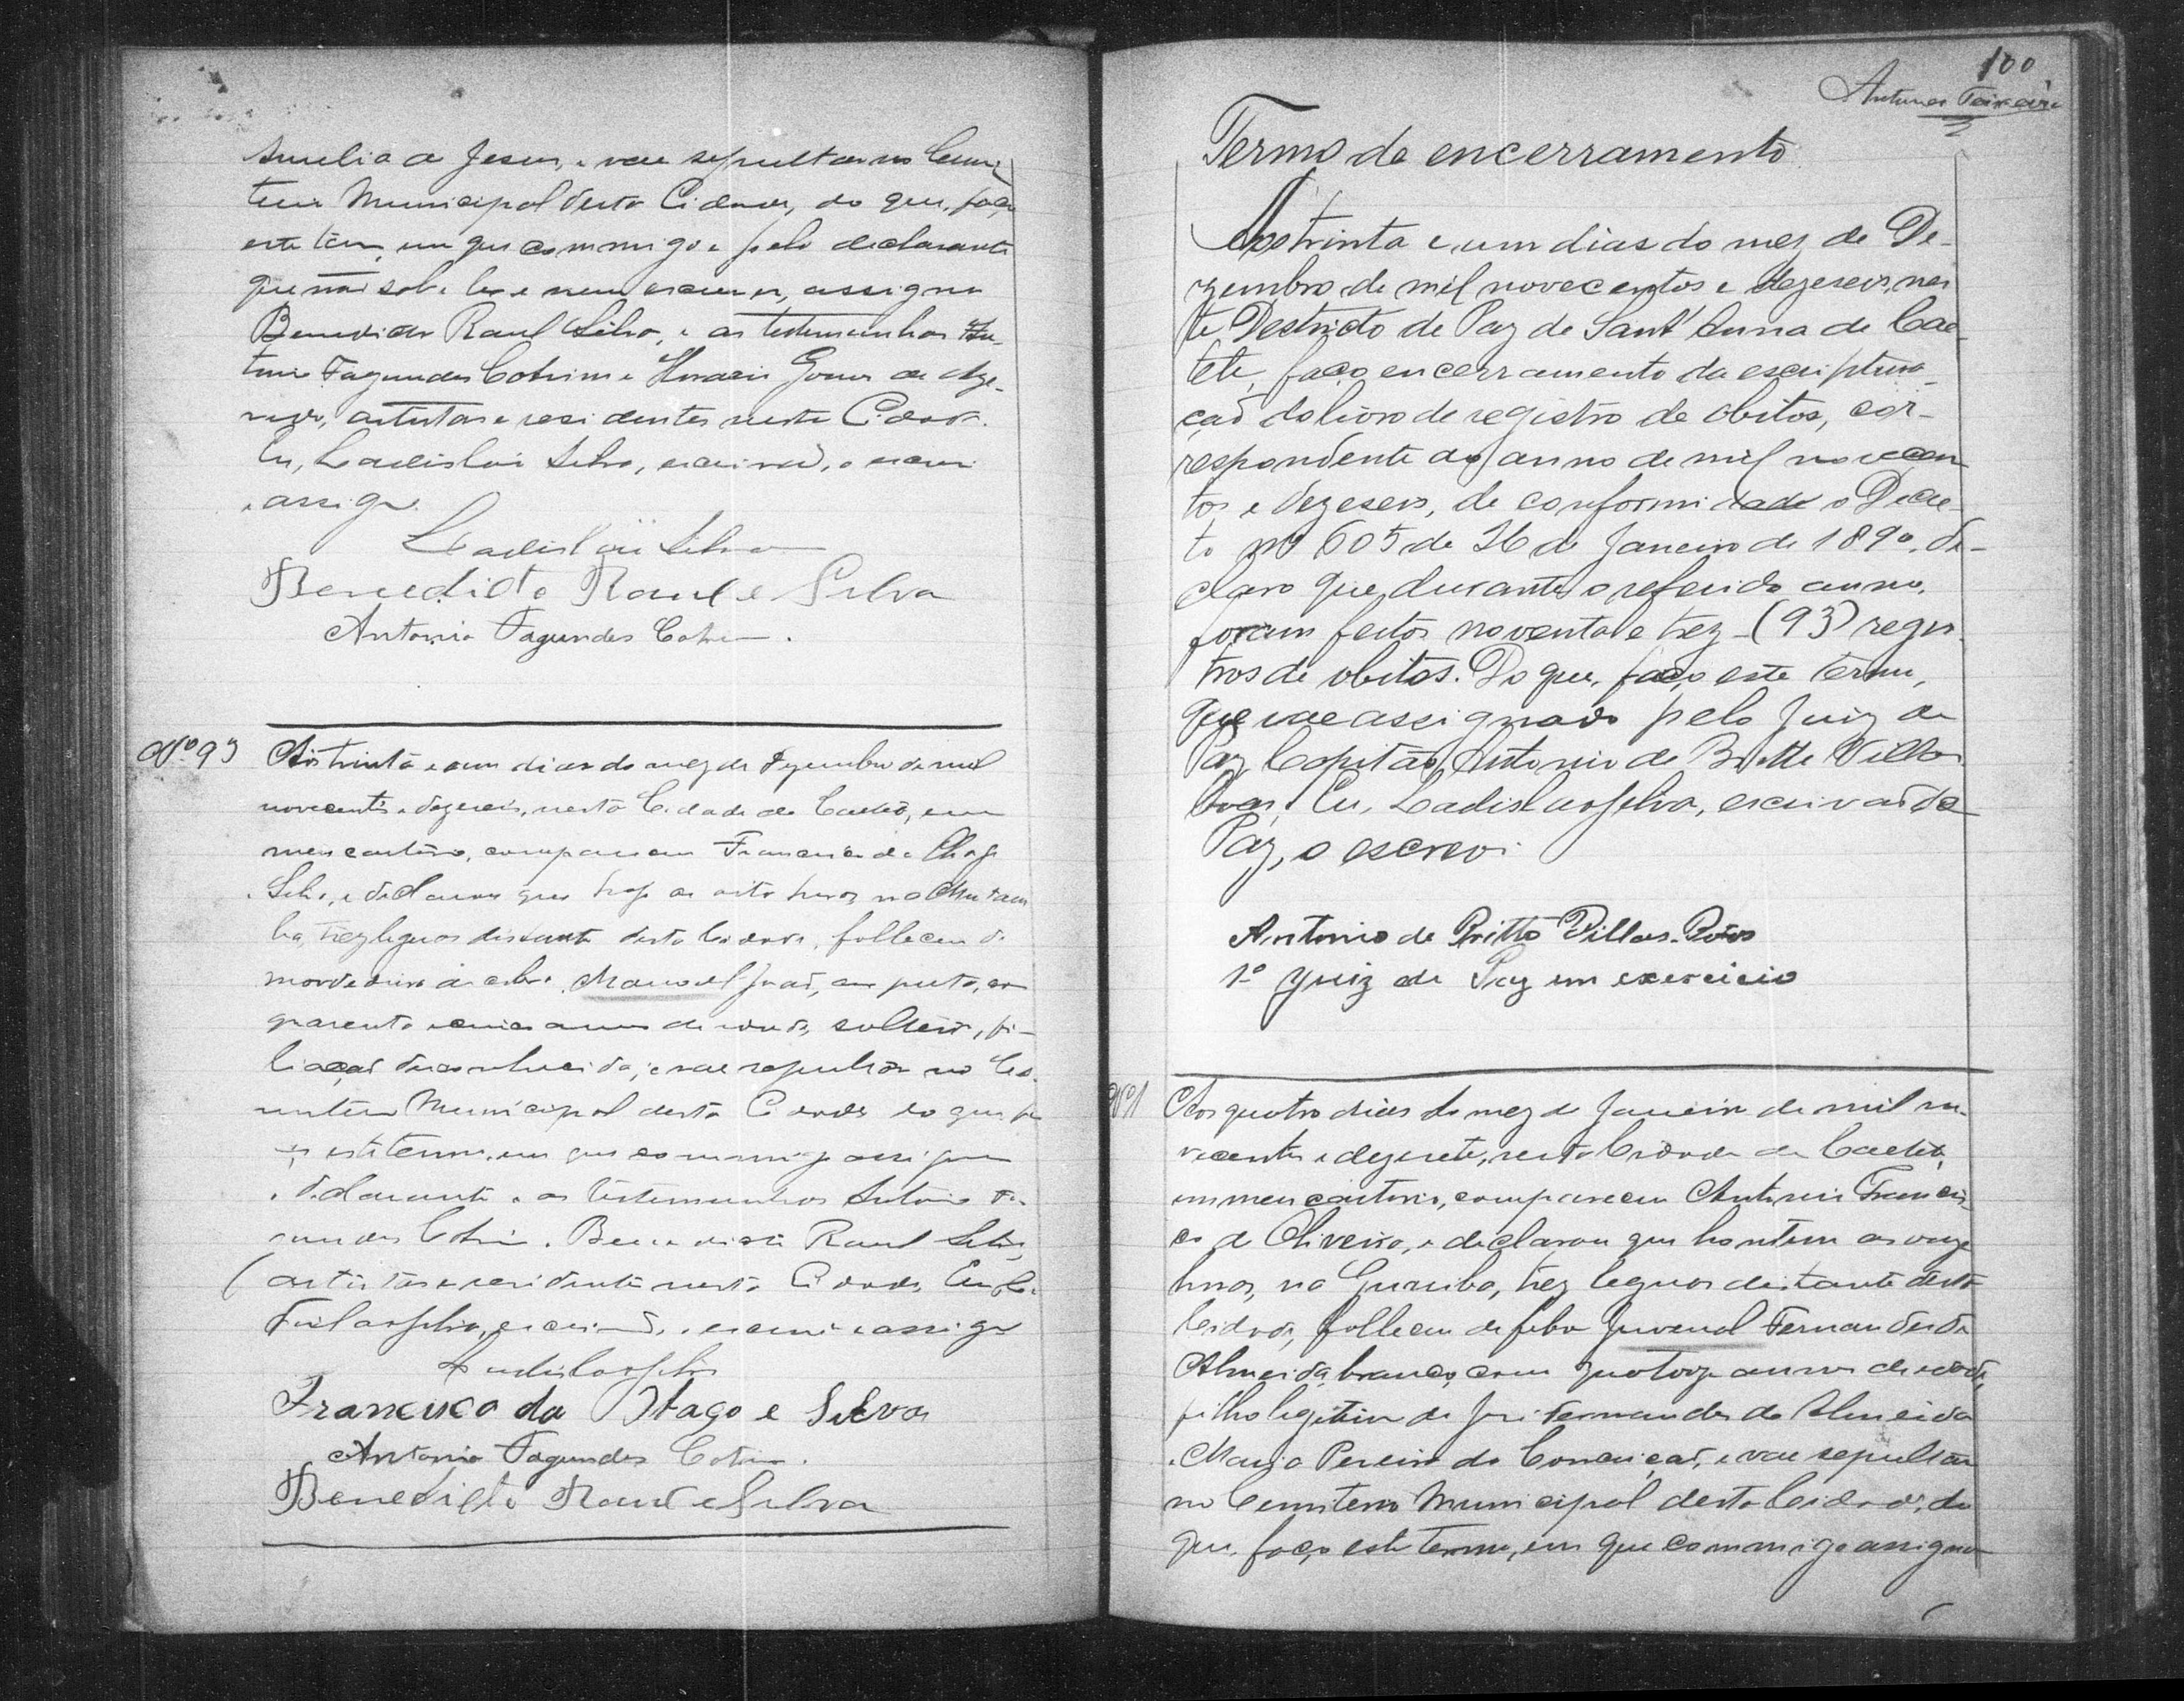 Amelia de Jesus, e vae sepultar no Cemi-
terio Municipal desta Cidade, do que, faço
este termo, em que commigo e pelo declarante
que não sabe ler e nem escrever, assigna
Benedicto Raul e Silva, e as testemunhas An-
tonio Fagundes Cotrim e Horacio Gomes de Aze-
vedo, artistas e residentes nesta Cidade.
Eu, Ladislau Silva, escrivão, o escrevi
e assigno.
Ladislau Silva
Benedicto Raul e Silva
Antonio Fagundes Cotrim.
Nº 93
Aos trinta e um dias do mez de Dezembro de mil
novecentos e dezeseis, nesta Cidade de Caeteté, em
meu cartorio, compareceu Francisco da
Silva, e declarou que hoje as oito horas, no
tres leguas distante desta Cidade, falleceu de
mordedura de cobra Manoel João, preto, com
quarenta e cinco annos de idade, solteiro, fi-
liação desconhecida, e vae sepultar no Ce-
miterio Municipal desta Cidade do que fa-
ço este termo, em que commigo assigna
o declarante e as testemunhas Antonio Fa-
gundes Cotrim e Benedicto Raul e Silva,
artistas e residentes nesta Cidade. Eu, La-
dislau Silva, escrivão, o escrevi e assigno
Ladislau Silva
Francisco da e Silva
Antonio Fagundes Cotrim.
Benedicto Raul e Silva
100
Antunes Teixeira
Termo de encerramento
Aos trinta e um dias do mez de De-
zembro de mil novecentos e dezeseis, nes
te Destricto de Paz de Sant'Anna de Cae-
teté, faço encerramento da escriptura-
ção do livro de registro de obitos, cor-
respondente ao anno de mil novecen-
tos e dezeseis, de conformidade o Decre-
to nº 605 de 26 de Janeiro de 1890, de-
claro que, durante o referido anno,
foram feitos noventa e trez (93) regis-
tros de obitos. Do que, faço este termo,
que vae assignado pelo Juiz de
Paz Capitão Antonio de Britto Villas
Boas. Eu, Ladislau Silva, escrivão de
Paz, o escrevi
Antonio de Britto Villas-Bôas
1º Juiz de Paz em exercicio
Nº 1
Aos quatro dias do mez de Janeiro de mil no-
vecentos e dezesete, nesta Cidade de Caeteté,
em meu cartorio, compareceu Antonio Francis-
co de Oliveira, e declarou que hontem as onze
horas, no trez leguas distante desta
Cidade, falleceu de febre Juvenal Fernandes de
Almeida, branco, com quatorze annos de idade,
filho legitimo de José Fernandes de Almeida
e Maria Pereira da Conceição, e vae sepultar
no Cemiterio Municipal desta Cidade, do
que, faço este termo, em que commigo assigna